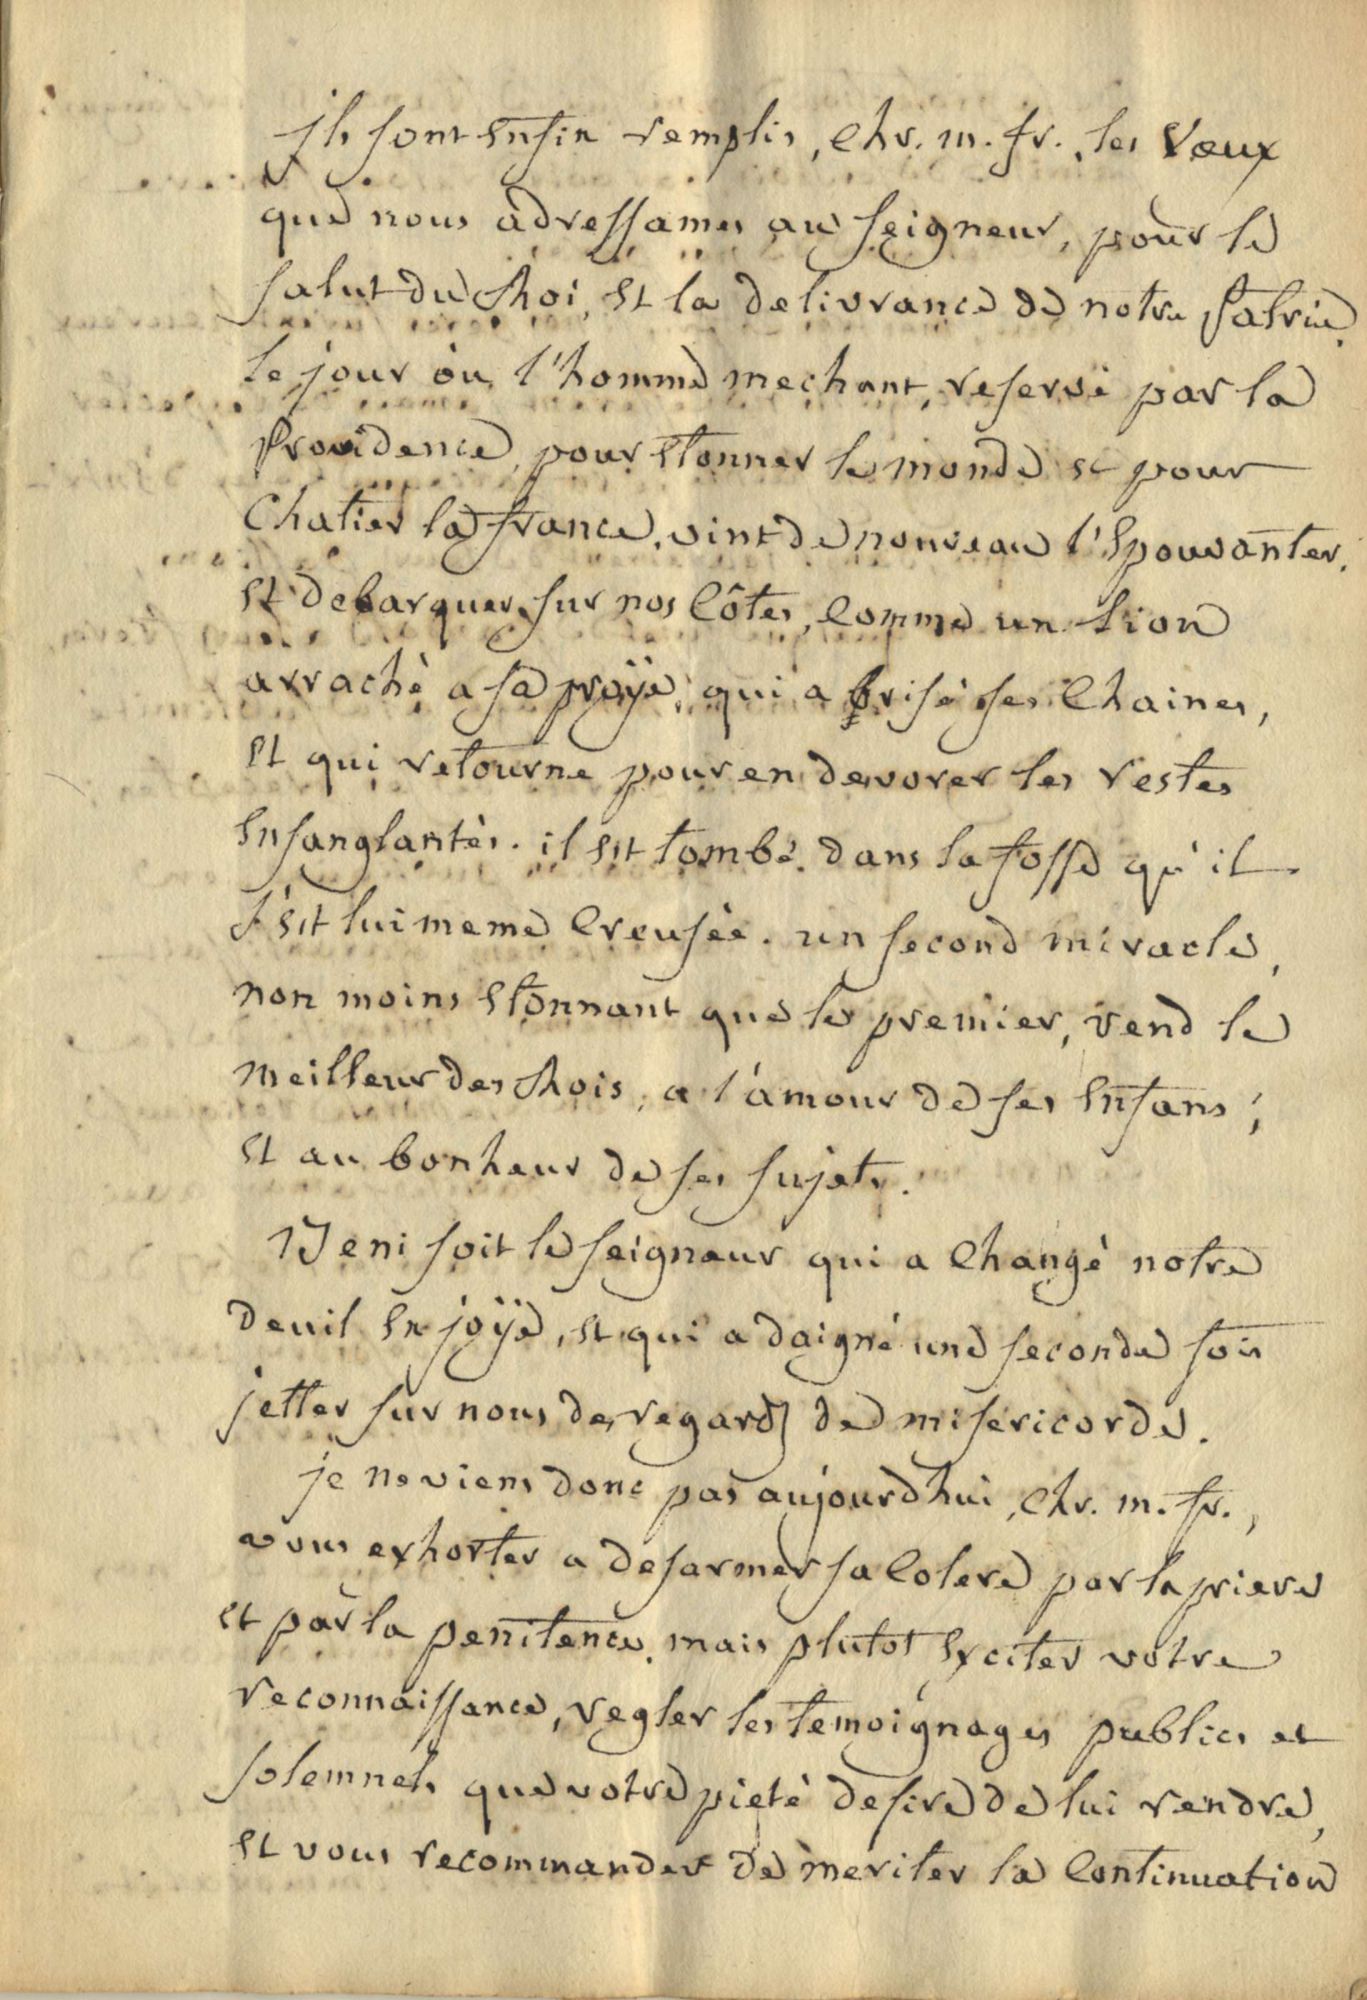 ils sont enfin remplis, chr. m. fr., les vœux
que nous adressames au seigneur, pour le
salut du Roi, et la delivrance de notre Patrie.
le jour où l'homme mechant, reservé par la
Providence, pour etonner le monde et pour
Chatier la france, vint de nouveau l'epouvanter,
et debarquer sur nos Côtes, Comme un Lion
arraché a sa proÿe, qui a brisé ses Chaines,
et qui retourne pour en devorer les restes
ensanglantés. il est tombé dans la fosse qu'il
s'est lui meme Creusée. un second miracle,
non moins etonnant que le premier, rend le
meilleur des Rois, a l'amour de ses enfans;
et au bonheur de ses sujets.
Beni soit le seigneur qui a Changé notre
deuil en joÿe, et qui a daigné une seconde fois
jetter sur nous des regards de misericorde.
je ne viens donc pas aujourdhui, chr. m. fr.,
vous exhorter a desarmer sa Colere par la priere
et par la penitence, mais plutot exciter votre
reconnaissance, regler les temoignages publics et
solemnels que votre pieté desire de lui rendre,
et vous recommander de meriter la Continuation